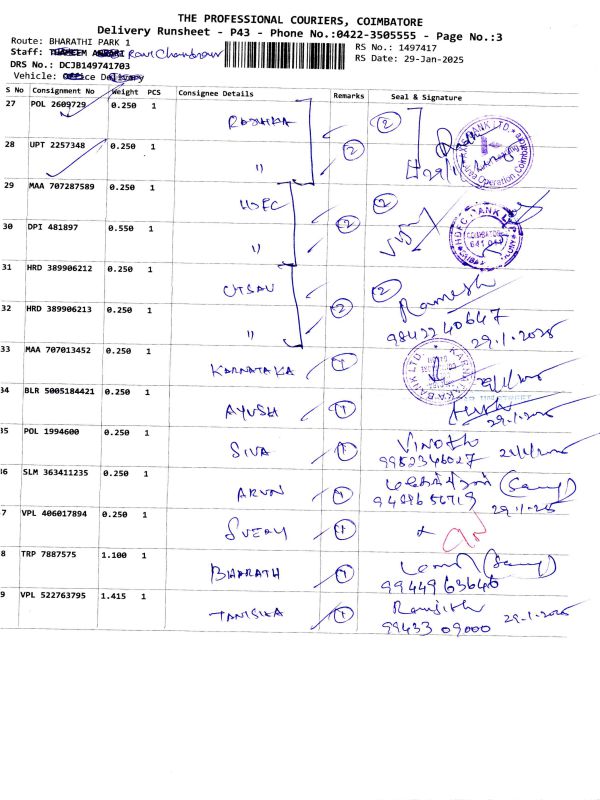 THE PROFESSIONAL COURIERS, COIMBATORE
Delivery Runsheet - P43 - Phone No.:0422-3505555 - Page No.:3
Route: BHARATHI PARK 1
RS No.: 1497417
Staff: Ravi Chandran
RS Date: 29-Jan-2025
DRS No.: DCJB149741703
Vehicle: Office Delivery
S No Consignment No Weight PCS Consignee Details Remarks Seal & Signature
27 POL 2609729 0.250 1 2 2
28 UPT 2257348 0.250 1 "
29 MAA 707287589 0.250 1 HDFC 2 2
30 DPI 481897 0.550 1 "
31 HRD 389906212 0.250 1 UTSAV 2 2 Ramesh
32 HRD 389906213 0.250 1 " 9842240647
29.1.2025
33 MAA 707013452 0.250 1 KARNATAKA 1
34 BLR 5005184421 0.250 1 AYUSH 1
29.1.2025
35 POL 1994600 0.250 1 SIVA 1 VINOTH
9952346027
36 SLM 363411235 0.250 1 ARUN 1
29.1.2025
7 VPL 406017894 0.250 1 1
8 TRP 7887575 1.100 1 BHARATH 1
9944963646
9 VPL 522763795 1.415 1 TANISHA 1 Ranjith 29.1.2025
99433 09000